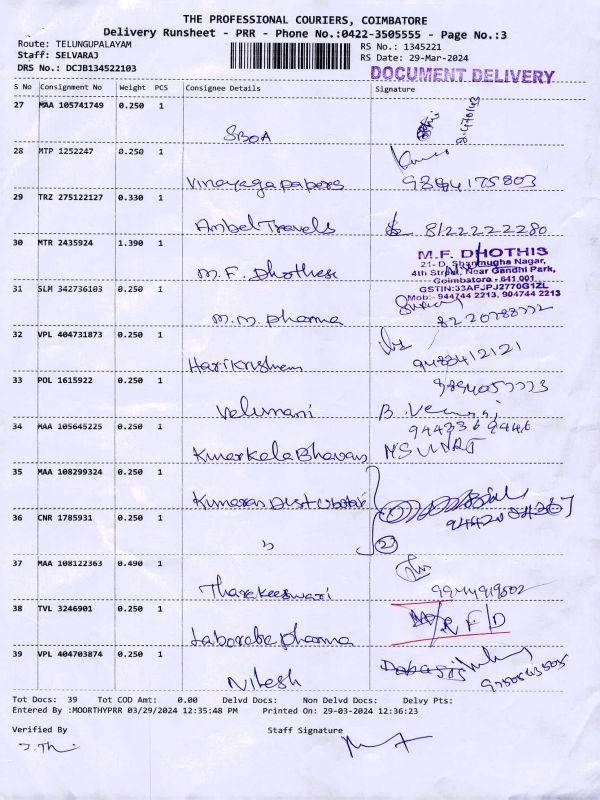 THE PROFESSIONAL COURIERS, COIMBATORE
Delivery Runsheet - PRR - Phone No.:0422-3505555 - Page No.:3
Route: TELUNGUPALAYAM
RS No.: 1345221
Staff: SELVARAJ
RS Date: 29-Mar-2024
DRS No.: DCJB134522103
DOCUMENT DELIVERY
S No Consignment No Weight PCS Consignee Details Signature
27 MAA 105741749 0.250 1
SBOA
28 MTP 1252247 0.250 1
Vinayaga papers 9884175803
29 TRZ 275122127 0.330 1
Anbel Travels 8122222280
30 MTR 2435924 1.390 1
M.F. Dhothese
M.F. DHOTHIS
21-D, Shanmugha Nagar,
4th Street, Near Gandhi Park,
Coimbatore - 641 001
GSTIN:33AFJPJ2770G1ZL
Mob:- 944744 2213, 904744 2213
31 SLM 342736103 0.250 1
M.M. pharma
32 VPL 404731873 0.250 1
Harikrishnan 9488412121
33 POL 1615922 0.250 1
Velumani B.
34 MAA 105645225 0.250 1
35 MAA 108299324 0.250 1
Kumaran
36 CNR 1785931 0.250 1
"
2
37 MAA 108122363 0.490 1
38 TVL 3246901 0.250 1
pharma RFD
39 VPL 404703874 0.250 1
Nitesh
Tot Docs: 39 Tot COD Amt: 0.00 Delvd Docs: Non Delvd Docs: Delvy Pts:
Entered By :MOORTHYPRR 03/29/2024 12:35:48 PM Printed On: 29-03-2024 12:36:23
Verified By Staff Signature